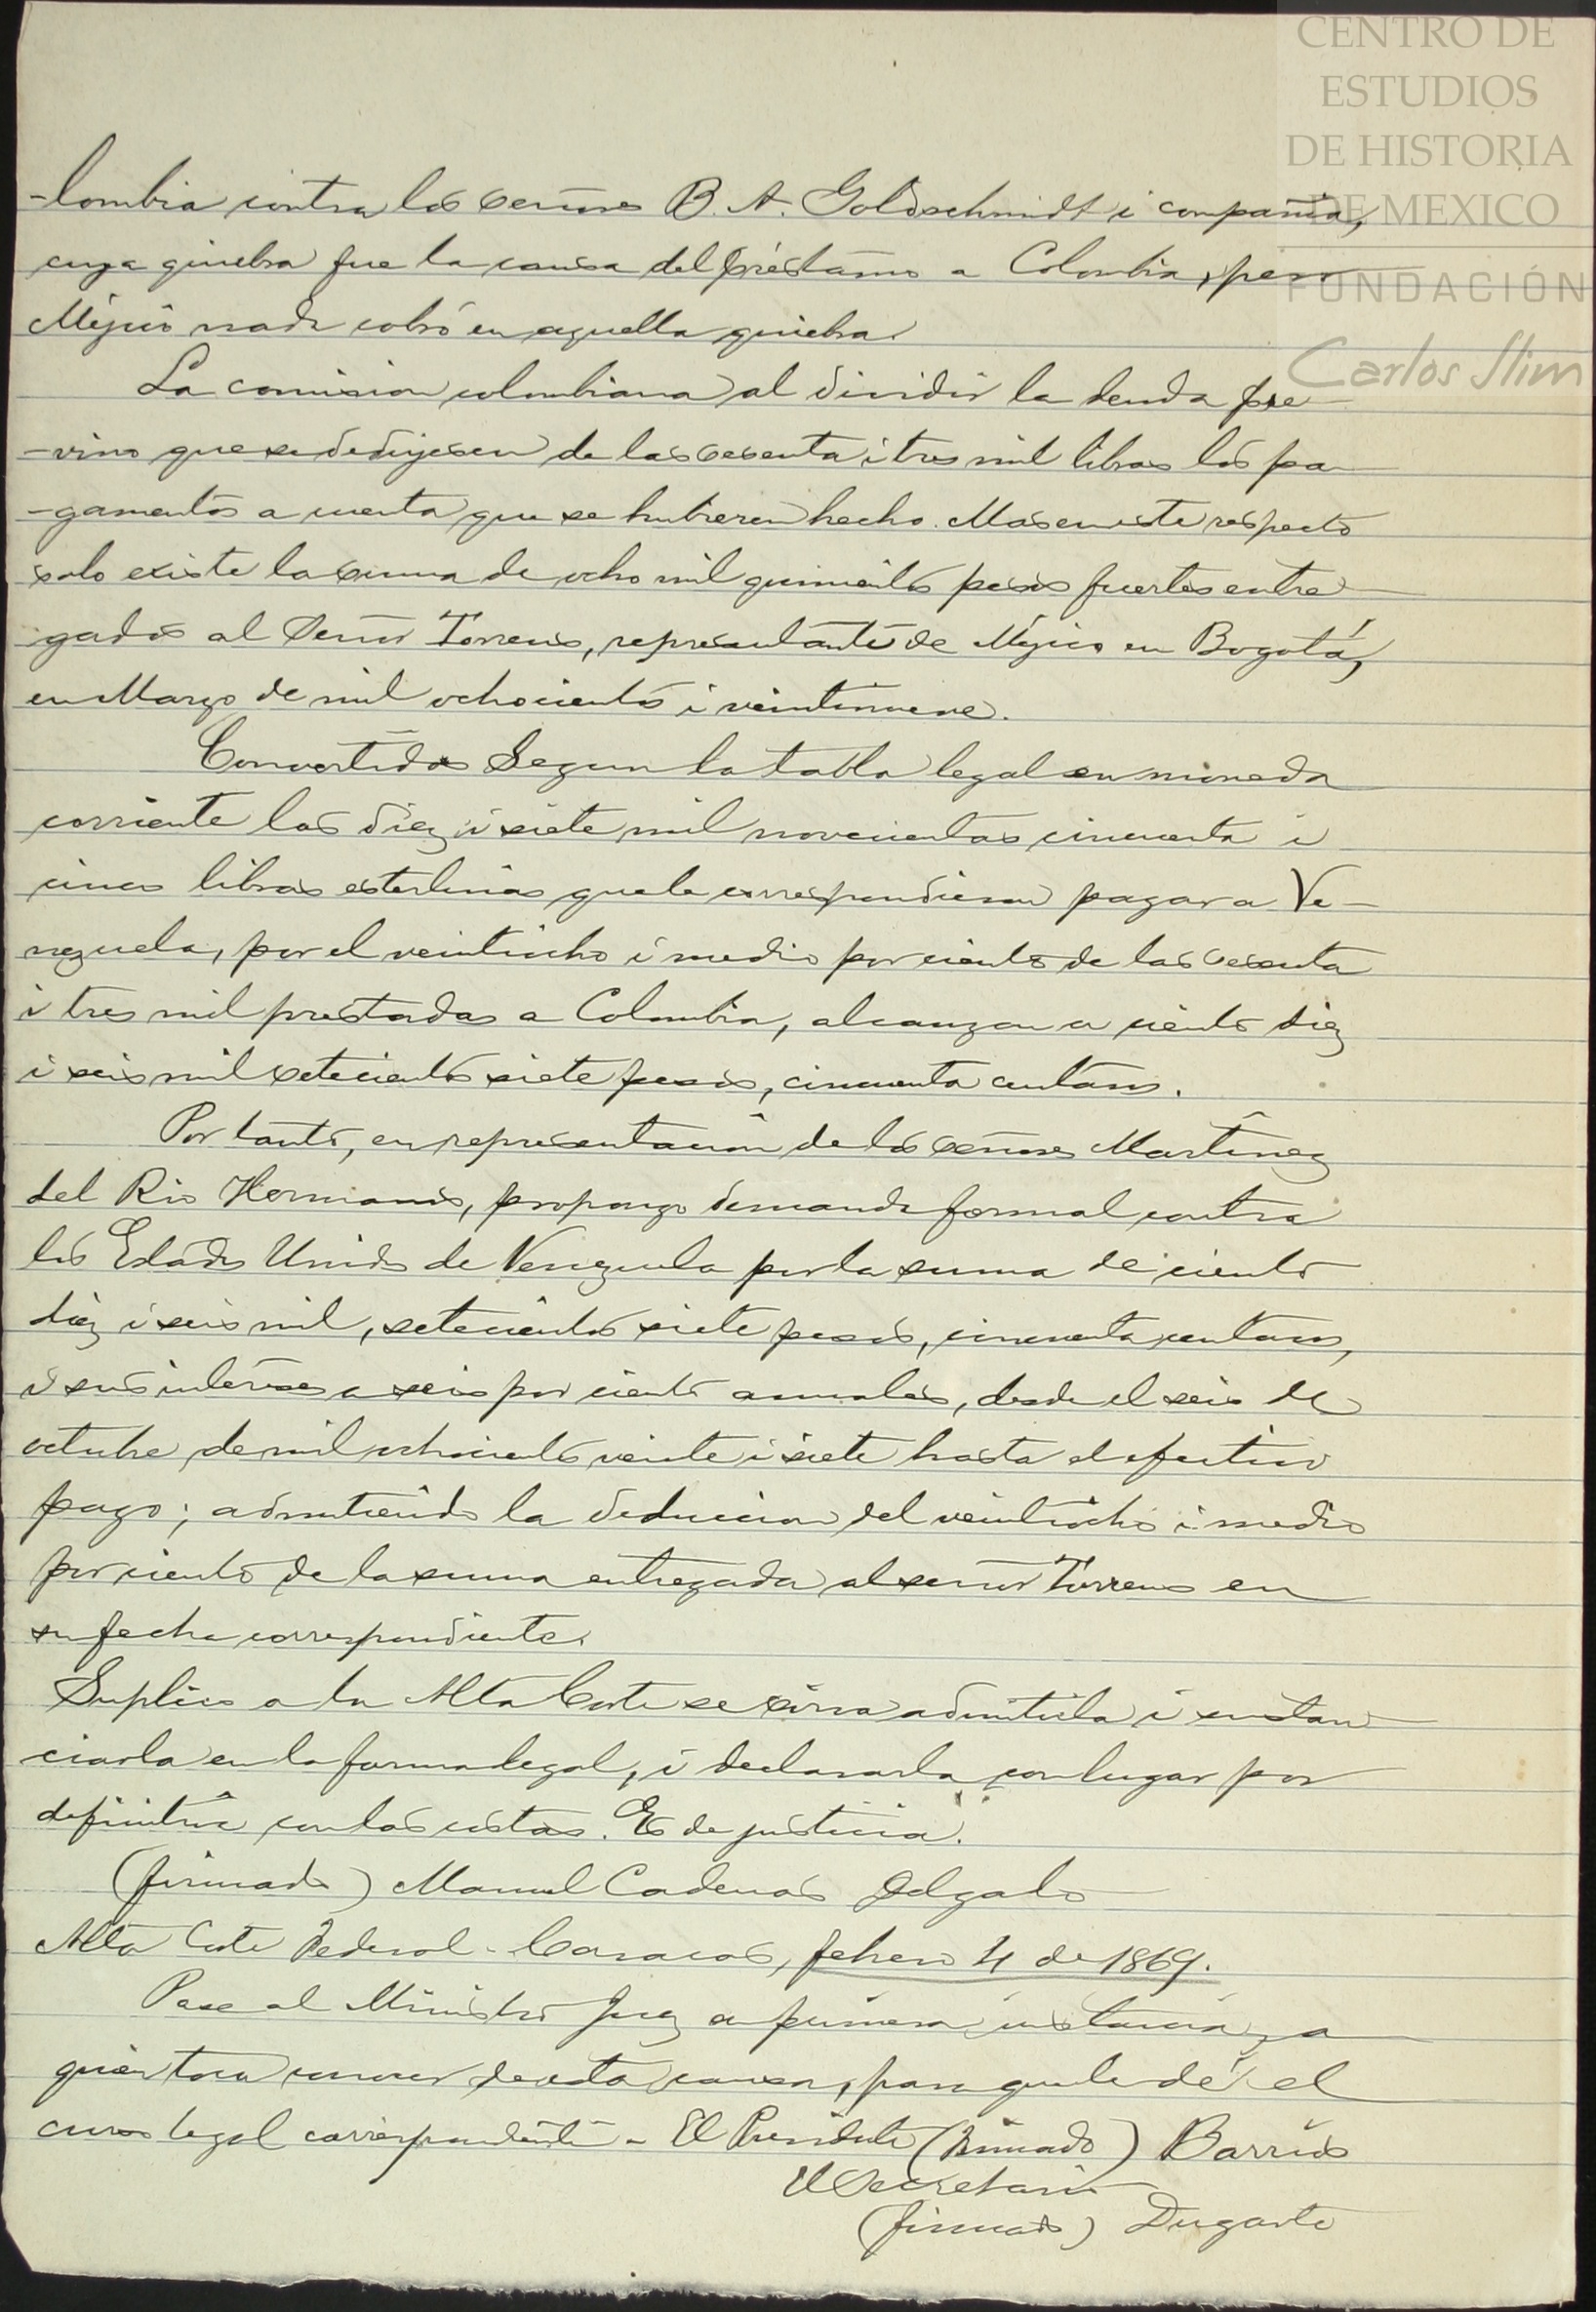 CENTRO DE
ESTUDIOS
DE HISTORIA
DE MEXICO
FUNDACIÓN
Carlos Slim
-lombia contra los señores B. A. Goldschmidt i compañia,
cuya quiebra fue la causa del préstamo a Colombia, pero
Méjico nada cobró en aquella quiebra.
La comision colombiana al dividir la deuda pre-
-vino que se dedujesen de las sesenta i tres mil libras los pa-
-gamentos a cuenta que se hubieren hecho. Mas en este respecto
solo existe la suma de ocho mil quinientos pesos fuertes entre-
gados al Señor Torrens, representante de Méjico en Bogotá,
en Marzo de mil ochocientos i veintinueve.
Convertidas Segun la tabla legal en moneda
corriente las diez i siete mil novecientas cincuenta i
cinco libras esterlinas que le correspondieron pagar a Ve-
nezuela, por el veintiocho i medio por ciento de las sesenta
i tres mil prestadas a Colombia, alcanzan a ciento diez
i seis mil setecientos siete pesos, cincuenta centavos.
Por tanto, en representación de los señores Martínez
del Rio Hermanos, propongo demanda formal contra
los Estados Unidos de Venezuela por la suma de ciento
diez i seis mil, setecientos siete pesos, cincuenta centavos,
i sus intereses a seis por ciento anuales, desde el seis de
octubre de mil ochocientos veinte i siete hasta el efectivo
pago; admitiendo la deduccion del veintiocho i medio
por ciento de la suma entregada al señor Torrens en
su fecha correspondiente.
Suplico a la Alta Corte se sirva admitirla i sustan-
ciarla en la forma legal, i declararla con lugar por
definitiva con las costas. Es de justicia.
(firmado) Manuel Cadenas Delgado
Alta Corte Federal - Caracas, febrero 4 de 1869.
Pase al Ministro Juez en primera instancia, a
quien toca conocer de esta causa, para que le dé el
curso legal correspondiente - El Presidente (firmado) Barrios
El Secretario
(firmado) Dugarte